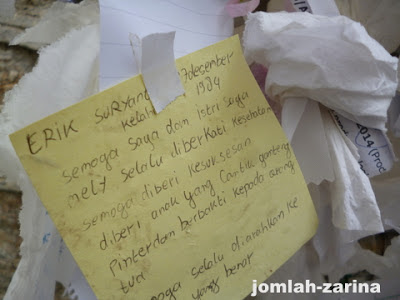 ERIK SURYANA 17 desember
Kelahi 1984
semoga saya dan istri saya
nely selalu diberkati kesehatan
semoga diberi kesuksesan
diberi anak yang Cantik ganteng
Pinter dan berbakti kepada orang
tua
semoga selalu diarahkan ke
yang benar
2014 (Proc
jomlah-zarina